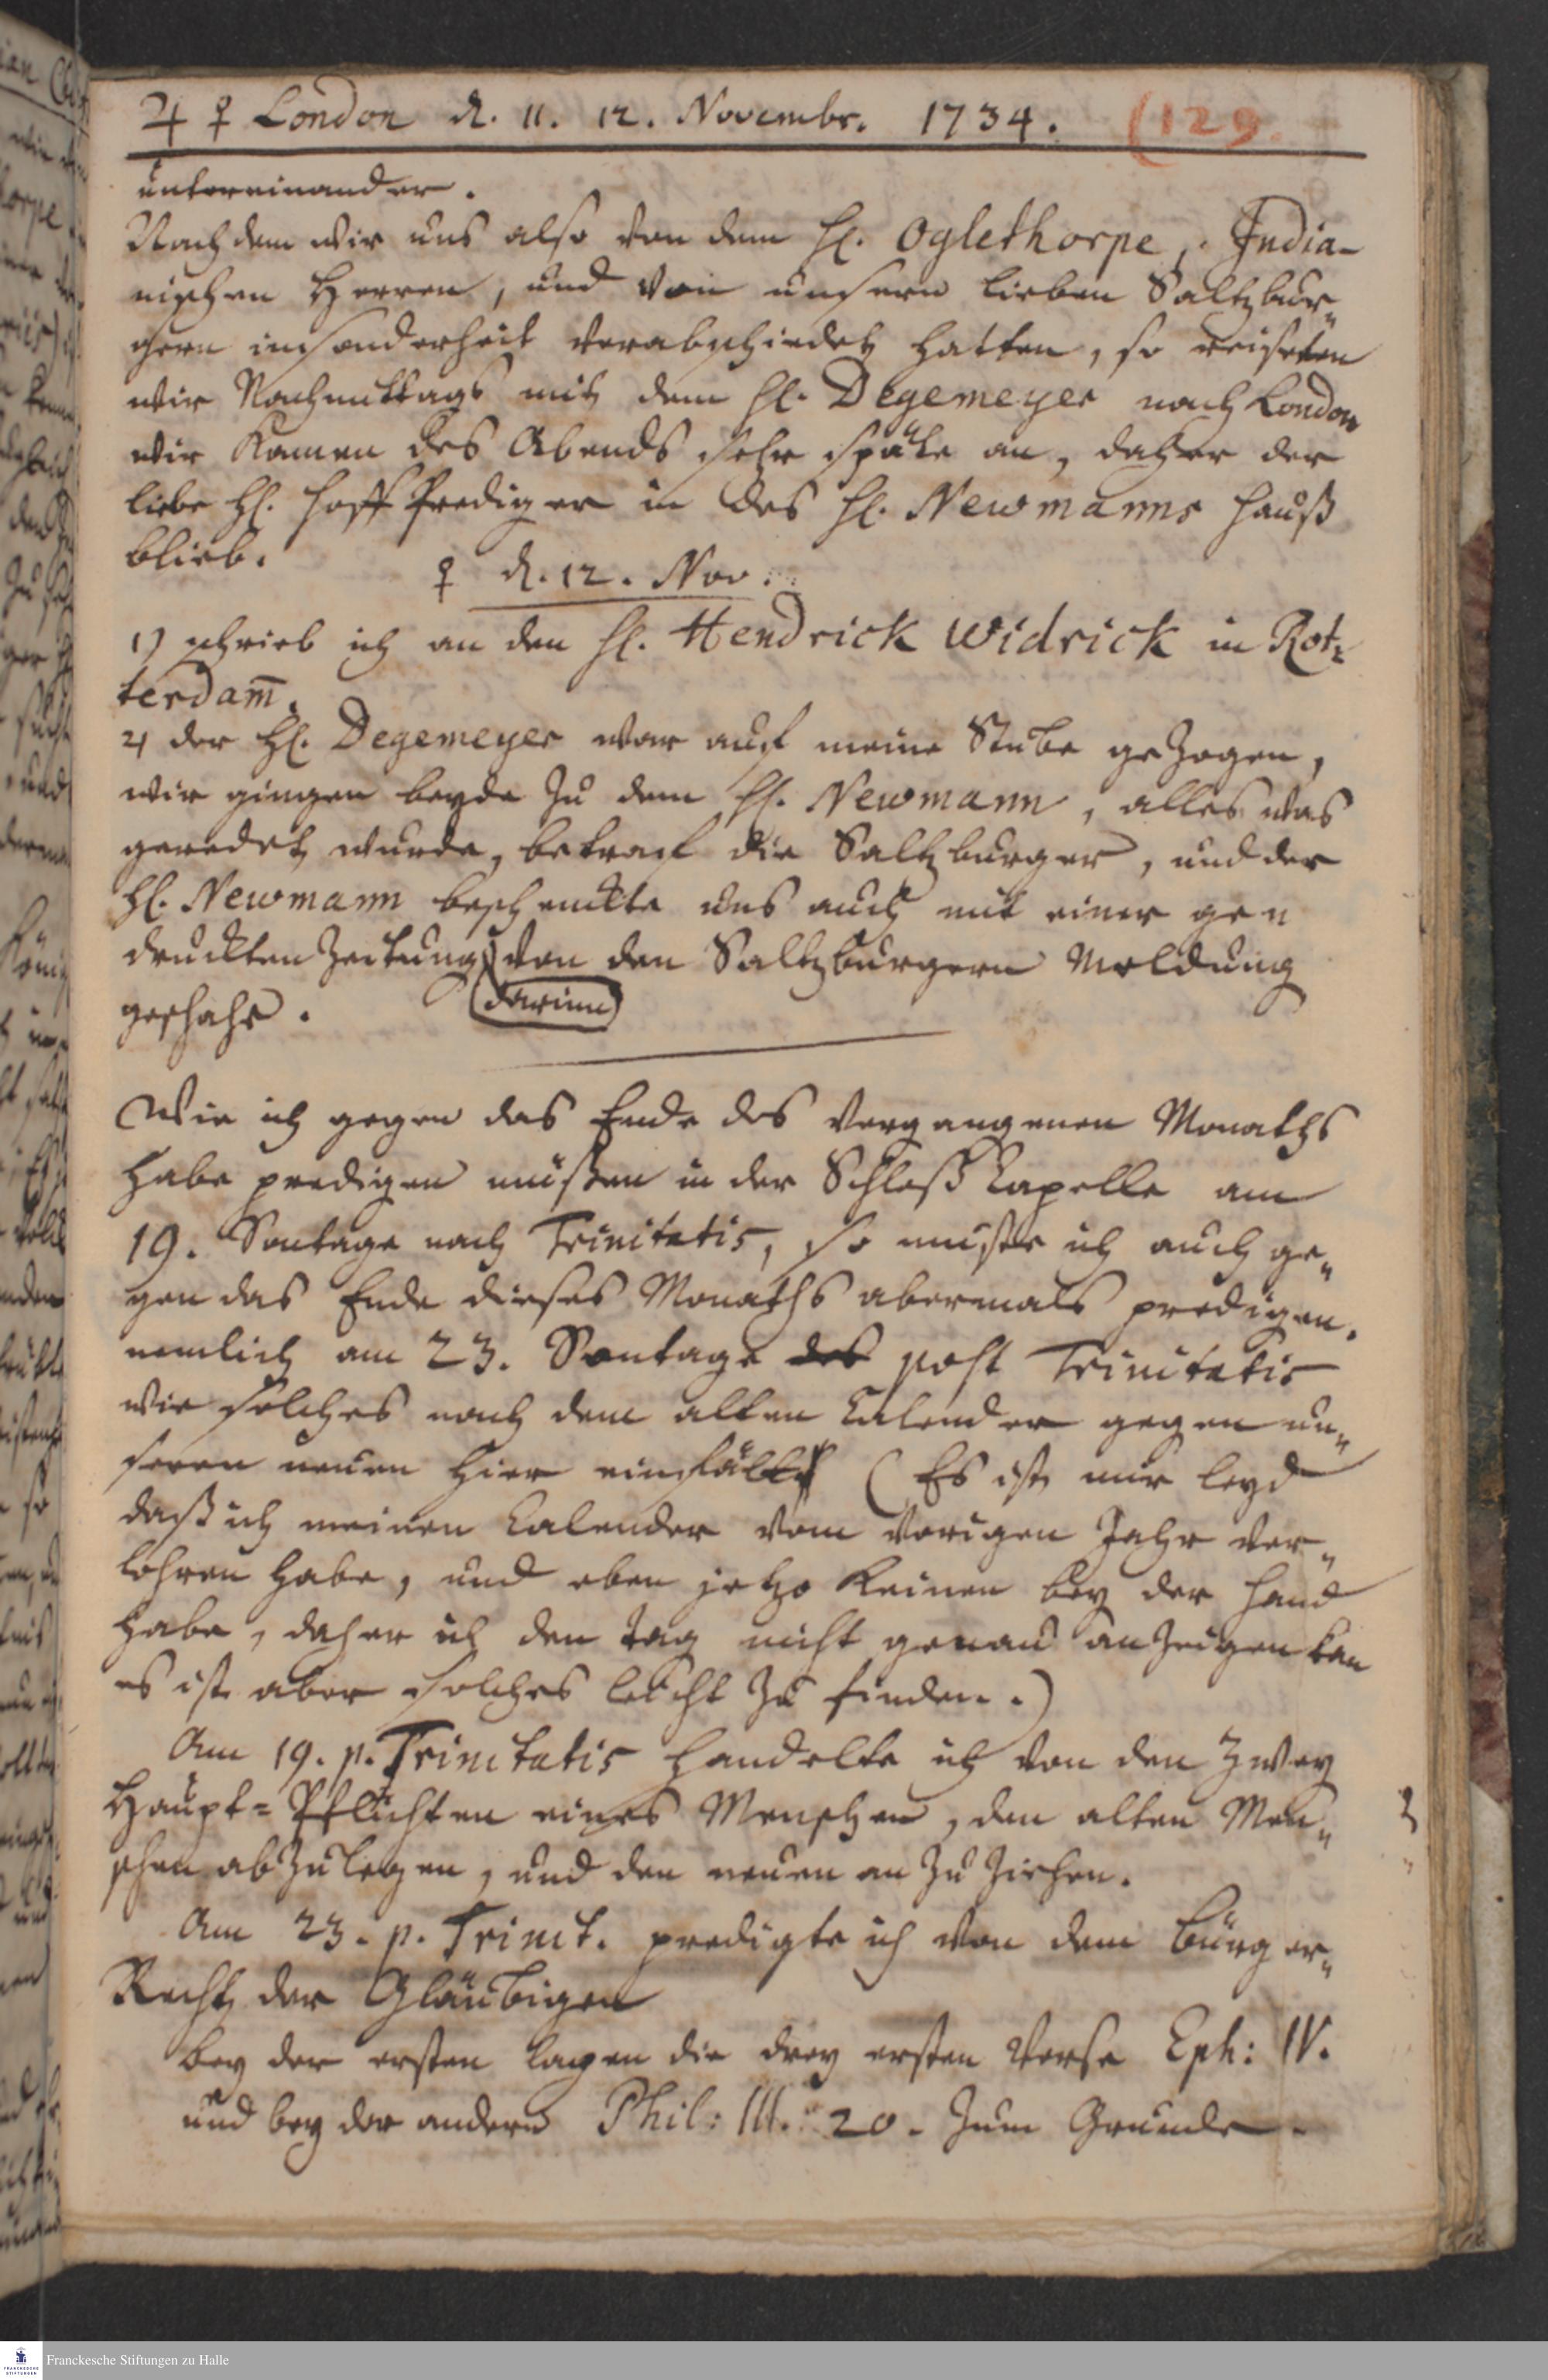 ♃ ♀ London d. 11. 12. Novembr. 1734. (129.
untereinander.
Nachdem wir uns also von dem H. Oglethorpe, India-
nischen Herren, und von unsern lieben Saltzbur„
gern insonderheit verabschiedet hatten, so reiseten
wir Nachmittags mit dem H. Degemeyer nach London
wir kamen des Abends sehr späte an, daher der
liebe H. Hoff Prediger in des H. Newmanns Hauß
blieb.
♀ d. 12. Nov.
1) schrieb ich an den H. Hendrick Widrick in Rot„
terdam̅.
2) der H. Degemeyer war auf meine Stube gezogen,
wir gingen beyde zu dem H. Newmann, alles was
geredet wurde, betraf die Saltzburger, und der
H. Newmann beschenckte uns auch mit einer ge„
druckten Zeitung von den Saltzburgern Meldung
geschahe. darinn
Wie ich gegen das Ende des vergangenen Monaths
habe predigen müßen in der Schloß Capelle am
19. Sontage nach Trinitatis, so muste ich auch ge„
gen das Ende dieses Monaths abermals predigen.
nemlich am 23. Sontage des post Trinitatis
wie solches nach dem alten Calender gegen un„
seren neuen hier einfällt (Es ist mir leyd
daß ich meinen Calender vom vorigen Jahr ver„
lohren habe, und eben jetzo keinen bey der Hand
habe, daher ich den Tag nicht genau anzeigen kan
es ist aber solches leicht zu finden.)
Am 19. p. Trinitatis handelte ich von den zwey
Haupt= Pflichten eines Menschen, den alten Men„
schen abzulegen, und den neuen anzuziehen.
Am 23. p. Trinit. predigte ich von dem Bürger„
Recht der Gläubigen
bey der ersten lagen die drey ersten Verse Eph: IV.
und bey der andern Phil: III. 20. zum Grunde.
Franckesche Stiftungen zu Halle
FRANCKESCHE
STIFTUNGEN